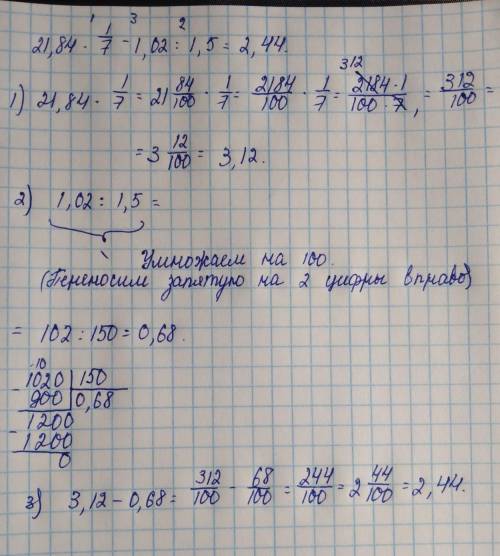 1 3 2
21,84 · 1/7 - 1,02 : 1,5 = 2,44.
1) 21,84 · 1/7 = 21 84/100 · 1/7 = 2184/100 · 1/7 = 312 2184·1/100·7, = 312/100 =
= 3 12/100 = 3,12.
2) 1,02 : 1,5 =
Умножаем на 100.
(Переносим запятую на 2 цифры вправо)
= 102 : 150 = 0,68.
-10
- 1020 | 150
900 | 0,68
- 1200
1200
0
3) 3,12 - 0,68 = 312/100 - 68/100 = 244/100 = 2 44/100 = 2,44.